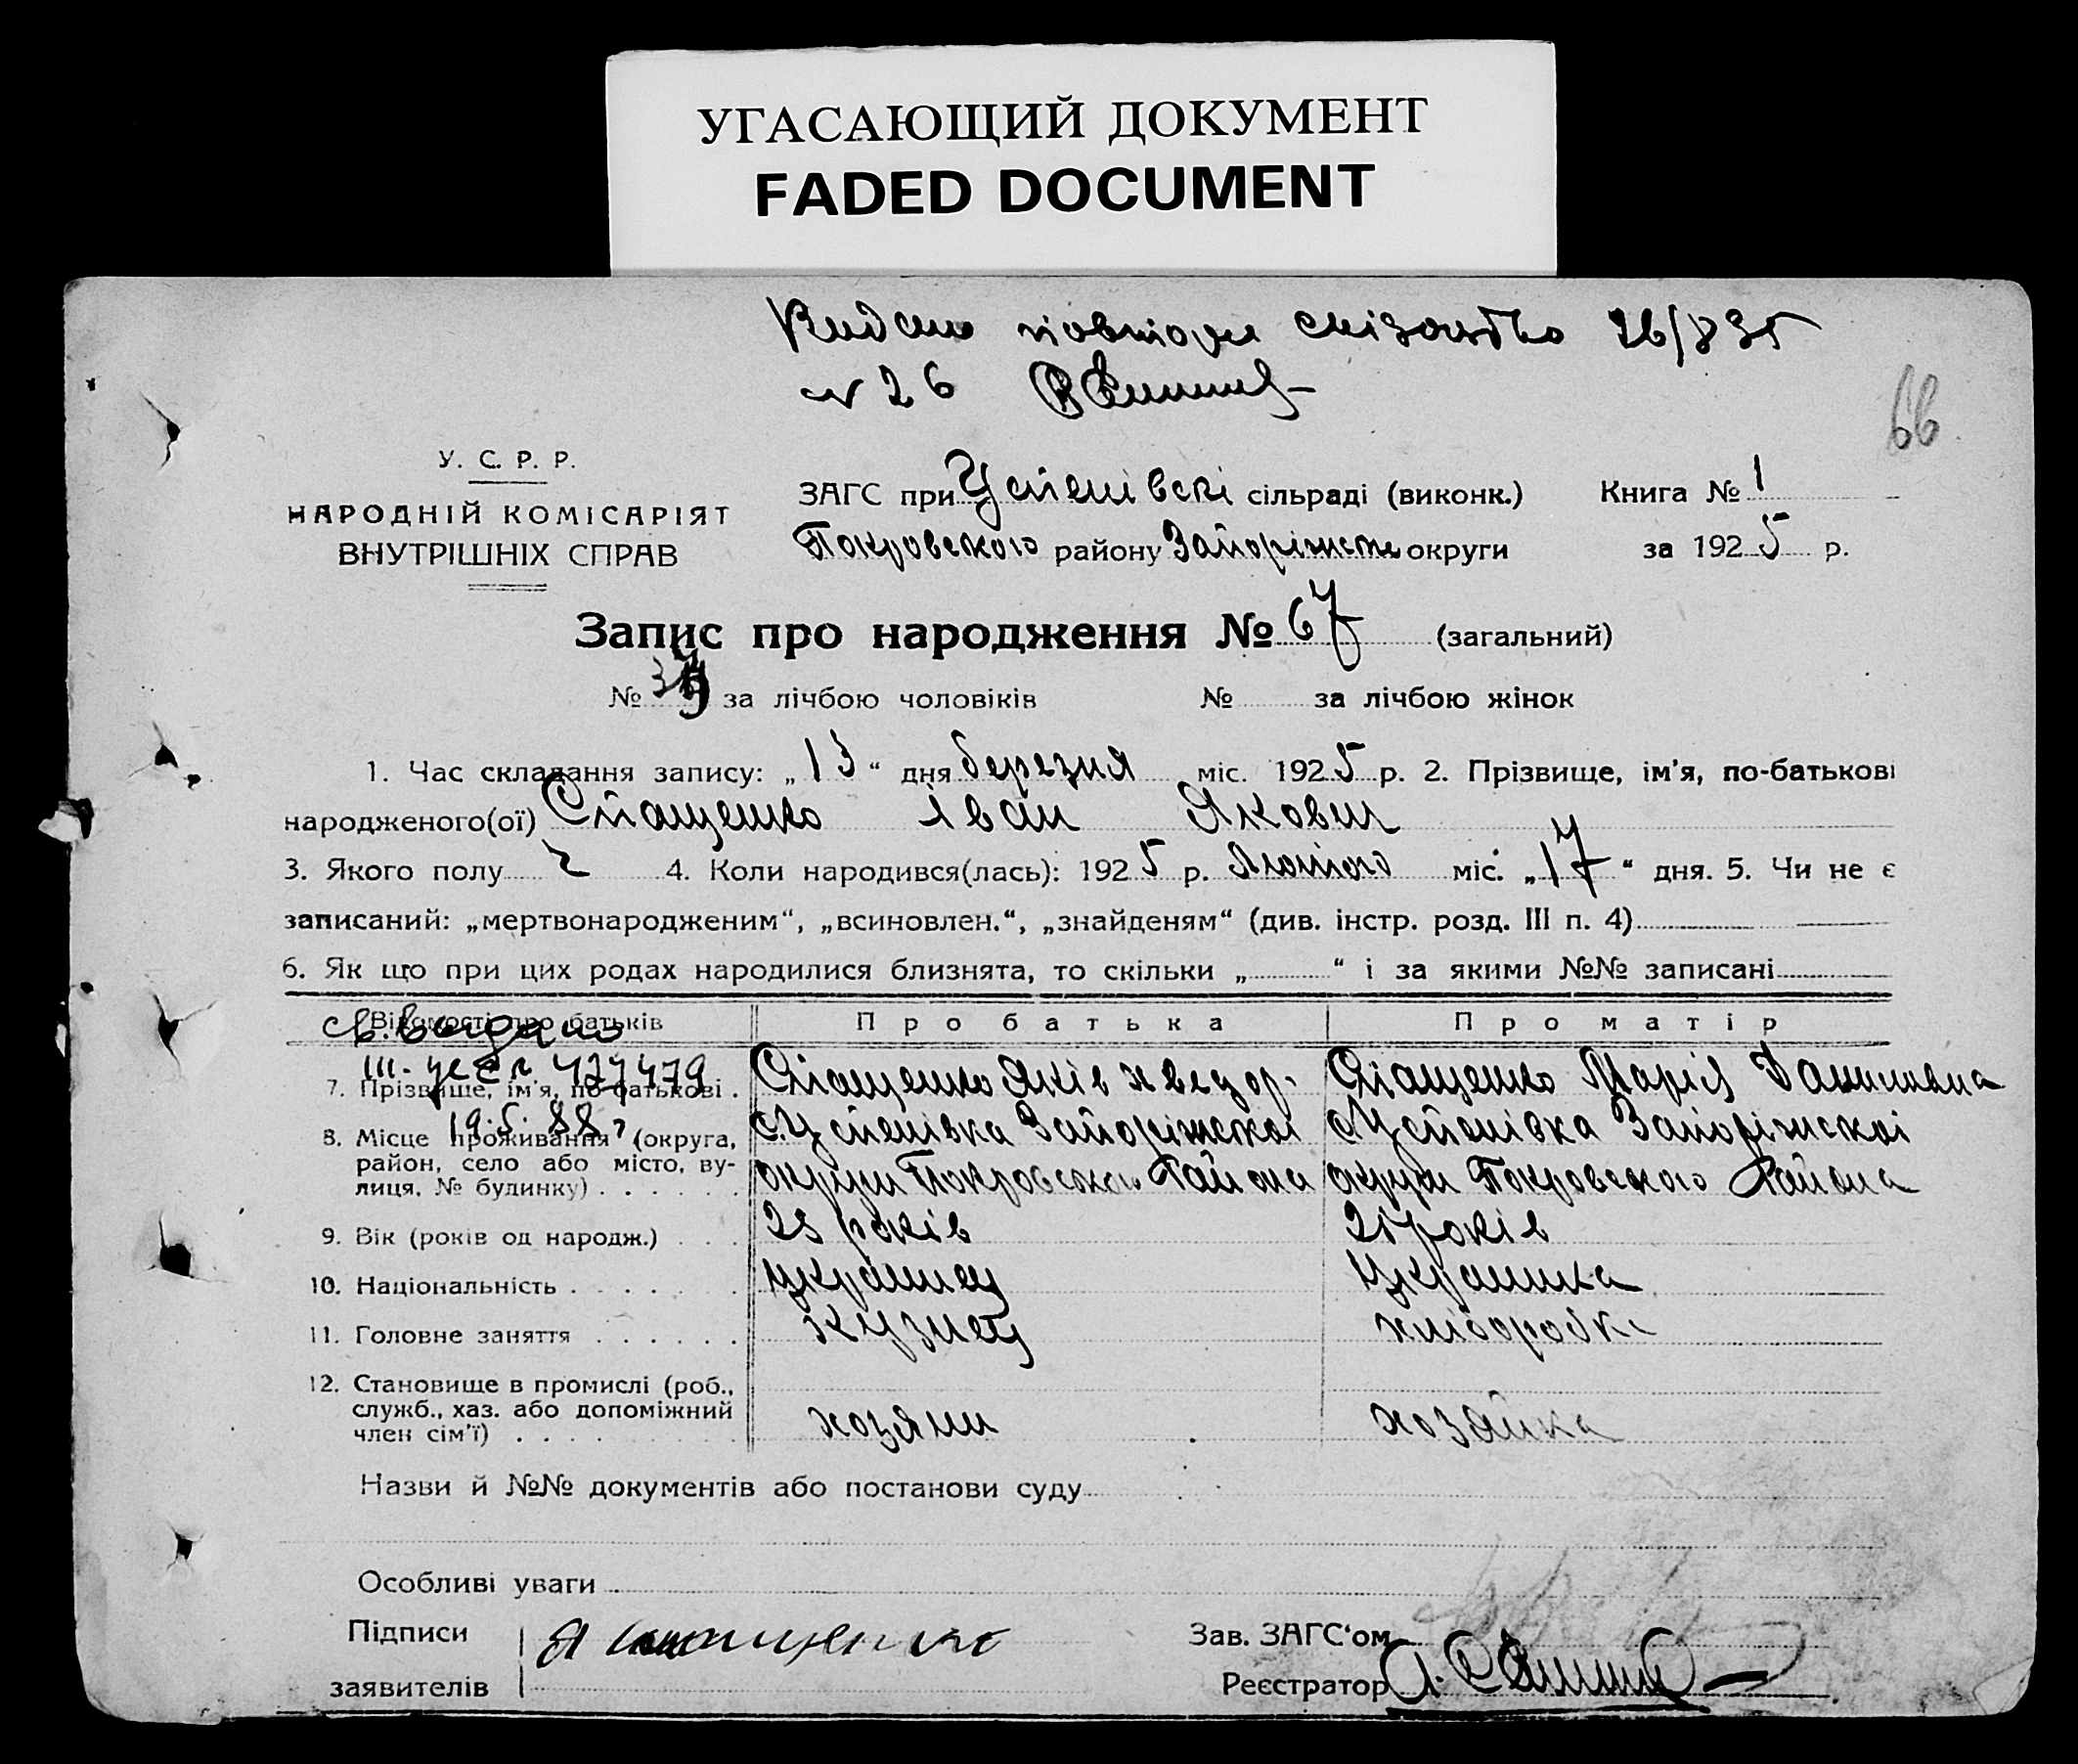 УГАСАЮЩИЙ ДОКУМЕНТ
FADED DOCUMENT
Видано повторне 26/8 35
№ 26
66
У. С. Р. Р.
НАРОДНІЙ КОМІСАРІЯТ
ВНУТРІШНІХ СПРАВ
ЗАГС при Успенівскі сільраді (виконк.) Книга № 1
Покровського району Запоріжськ округи за 1925 р.
Запис про народження № 67 (загальний)
№ за лічбою чоловіків № за лічбою жінок
1. Час складання запису: „13“ дня березня міс. 1925 р. 2. Прізвище, ім'я, по-батькові
народженого(ої) Стащенко Іван Якович
3. Якого полу ч 4. Коли народився(лась): 1925 р. Лютого міс. „17“ дня. 5. Чи не є
записаний: „мертвонародженим“, „всиновлен.“, „знайденям“ (див. інстр. розд. III п. 4)
6. Як що при цих родах народилися близнята, то скільки „ “ і за якими №№ записані
Відомості про батьків Про батька Про матір
св. выдано
III-УР № 427479
19.5.88г
7. Прізвище, ім'я, по-батькові . Стащенко Яків Хведор. Стащенко Марія Даниловна
8. Місце проживання (округа, с. Успенівка Запоріжскоі с. Успенівка Запоріжскоі
район, село або місто, ву- округи Покровського Района округи Покровського Района
лиця, № будинку) . . . . . .
9. Вік (років од народж.) . . . років років
10. Національність . . . . . . . українец Українка
11. Головне заняття . . . . . . Кузнец хліборобка
12. Становище в промислі (роб.,
служб., хаз. або допоміжний хозяин хозяйка
член сім'ї) . . . . . . . . .
Назви й №№ документів або постанови суду
Особливі уваги
Підписи Я Стащенко Зав. ЗАГС'ом
заявителів Реєстратор